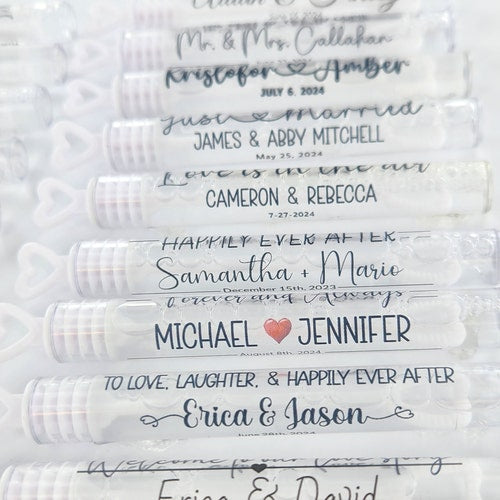 Mr. & Mrs. Callahan
Kristofor Amber
JULY 6, 2024
Just Married
JAMES & ABBY MITCHELL
May 25, 2024
Love is in the air
CAMERON & REBECCA
7-27-2024
HAPPILY EVER AFTER
Samantha + Mario
December 15th, 2023
Forever and Always
MICHAEL JENNIFER
August 8th, 2024
TO LOVE, LAUGHTER, & HAPPILY EVER AFTER
Erica & Jason
June 28th, 2024
Welcome to our Love Story
Erica & David